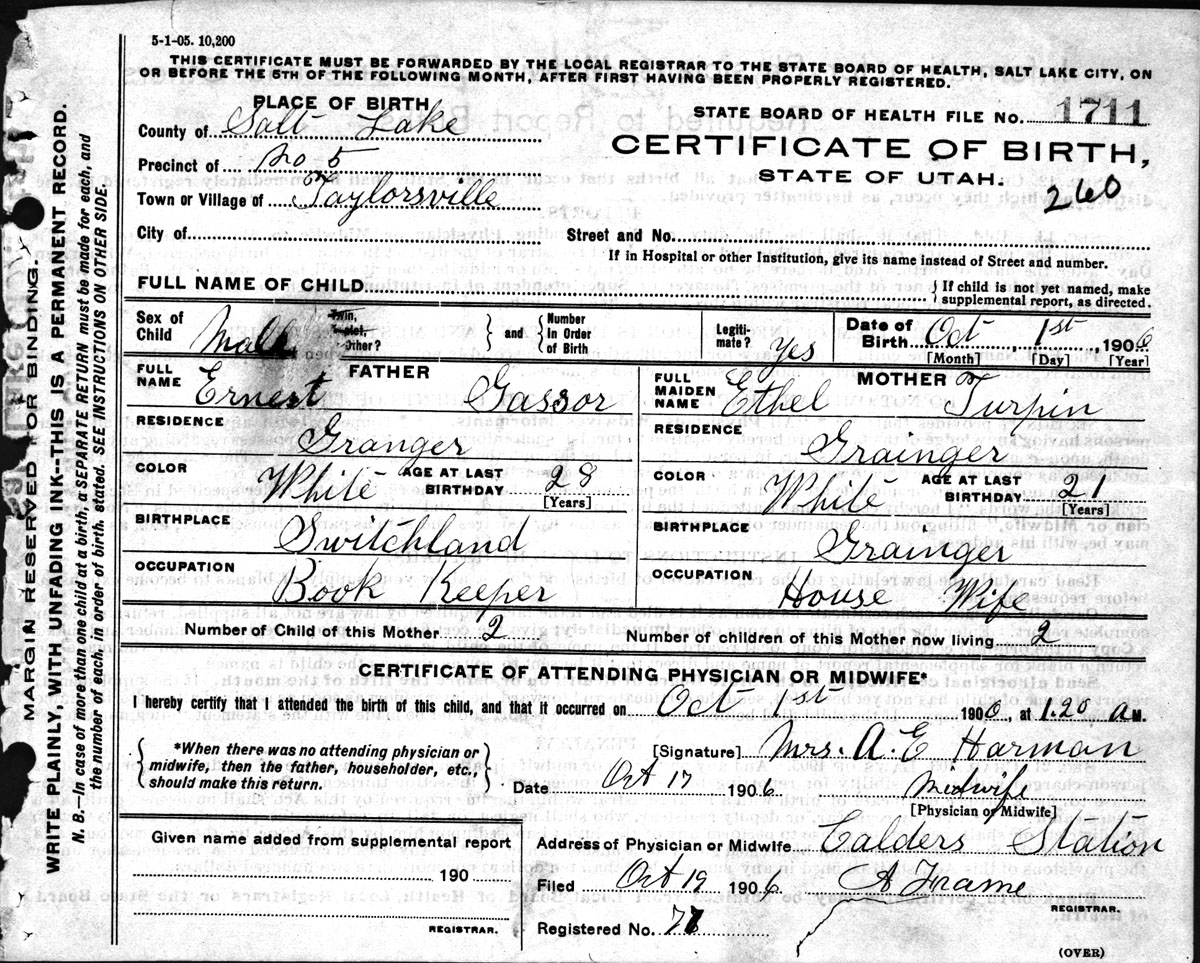 5-1-05. 10,200
THIS CERTIFICATE MUST BE FORWARDED BY THE LOCAL REGISTRAR TO THE STATE BOARD OF HEALTH, SALT LAKE CITY, ON
OR BEFORE THE 5TH OF THE FOLLOWING MONTH, AFTER FIRST HAVING BEEN PROPERLY REGISTERED.
PLACE OF BIRTH
County of Salt Lake
Precinct of No 5
Town or Village of Taylorsville
City of
STATE BOARD OF HEALTH FILE No. 1711
CERTIFICATE OF BIRTH,
STATE OF UTAH.
260
Street and No.
If in Hospital or other Institution, give its name instead of Street and number.
FULL NAME OF CHILD
If child is not yet named, make
supplemental report, as directed.
Sex of Child Male
Twin, Triplet, Other?
and Number In Order of Birth
Legitimate? Yes
Date of Birth Oct 1st, 1906
[Month] [Day] [Year]
FULL NAME FATHER Ernest Gassor
RESIDENCE Granger
COLOR White AGE AT LAST BIRTHDAY 28
[Years]
BIRTHPLACE Switchland
OCCUPATION Book Keeper
FULL MAIDEN NAME MOTHER Ethel Turpin
RESIDENCE Grainger
COLOR White AGE AT LAST BIRTHDAY 21
[Years]
BIRTHPLACE Grainger
OCCUPATION House Wife
Number of Child of this Mother 2
Number of children of this Mother now living 2
CERTIFICATE OF ATTENDING PHYSICIAN OR MIDWIFE*
I hereby certify that I attended the birth of this child, and that it occurred on Oct 1st 1906, at 1.20 AM.
*When there was no attending physician or
midwife, then the father, householder, etc.,
should make this return.
[Signature] Mrs. A. E Harman
Date Oct 17 1906 Midwife
[Physician or Midwife]
Given name added from supplemental report
190
REGISTRAR.
Address of Physician or Midwife Calders Station
Filed Oct 19 1906 A Frame
REGISTRAR.
Registered No. 71
(OVER)
MARGIN RESERVED FOR BINDING.
WRITE PLAINLY, WITH UNFADING INK--THIS IS A PERMANENT RECORD.
N. B.--In case of more than one child at a birth, a SEPARATE RETURN must be made for each, and
the number of each, in order of birth, stated. SEE INSTRUCTIONS ON OTHER SIDE.